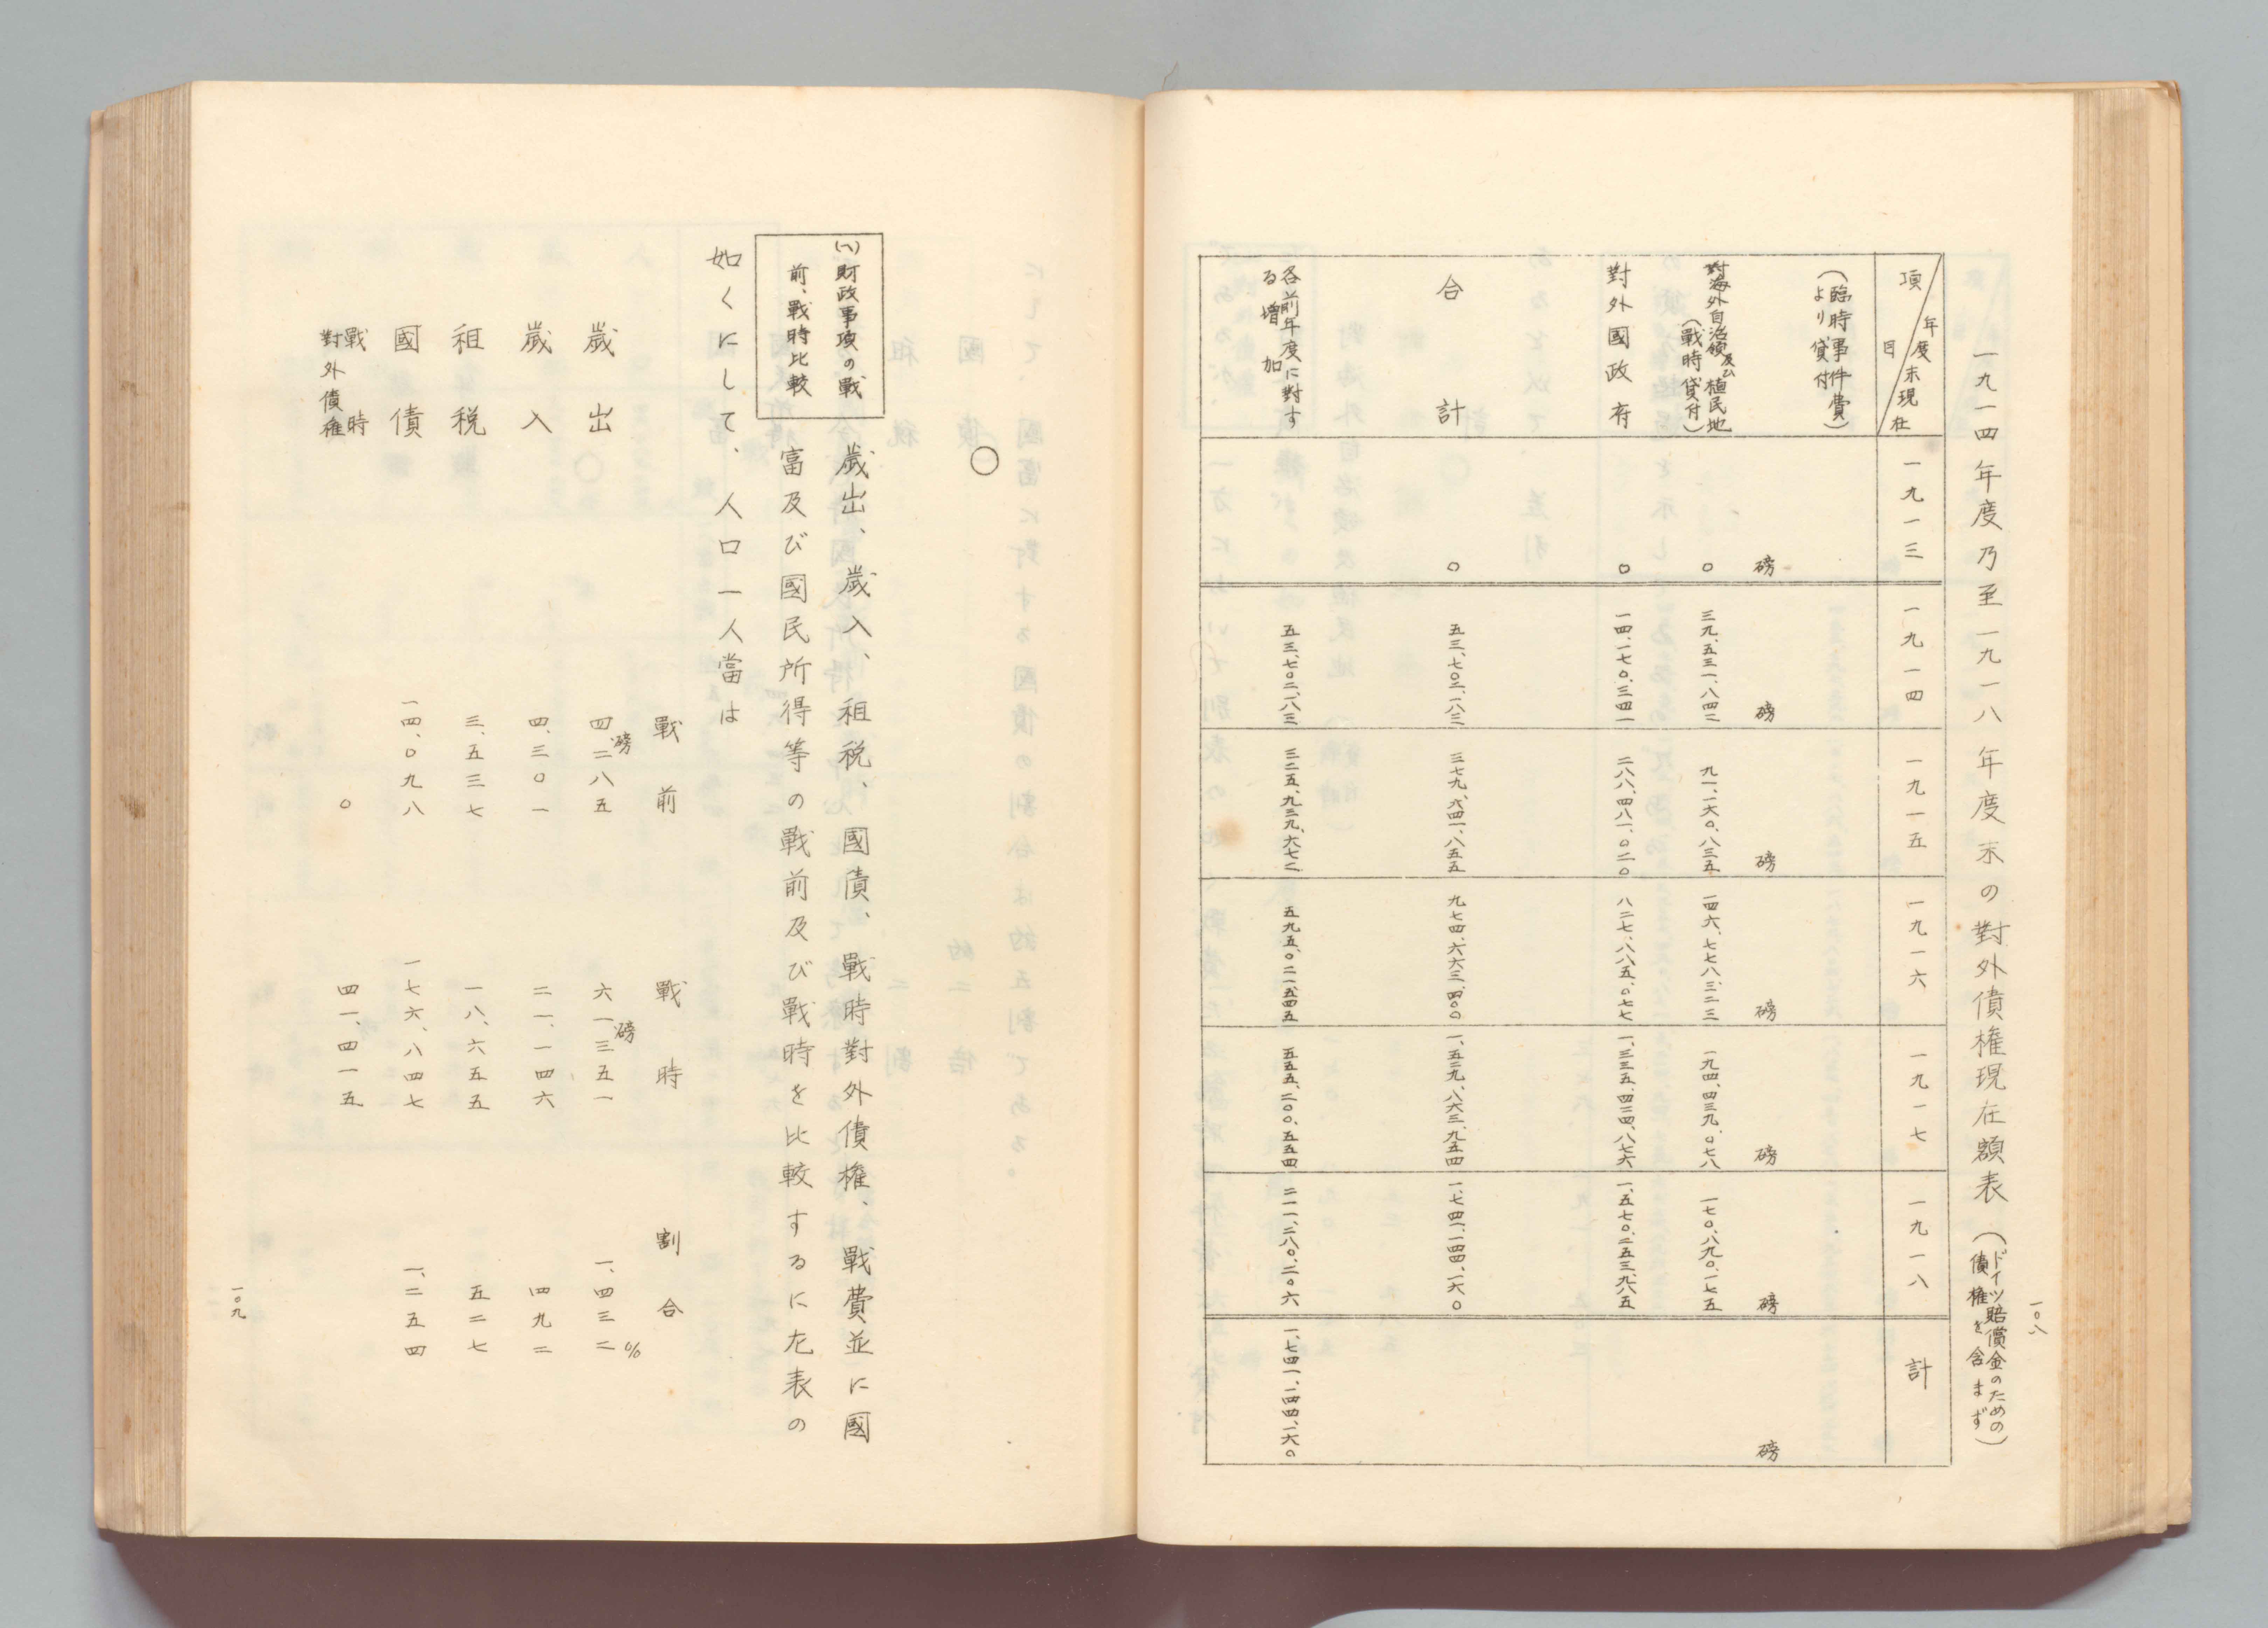 一〇八
一九一四年度乃至一九一八年度末の對外債權現在額表
(ドイツ賠償金のための
債權を含まず)
年度末現在
項目
一九一三 一九一四 一九一五 一九一六 一九一七 一九一八 計
(臨時事件費
より貸付)
磅 磅 磅 磅 磅 磅 磅
對海外自治領及ビ植民地
(戰時貸付)
〇 三九、五三一、八四二 九一、一六〇、八三五 一四六、七七八、三二三 一九四、四三九、〇七八 一七〇、八九〇、一七五
對外國政府 〇 一四、一七〇、三四一 二八八、四八一、〇二〇 八二七、八八五、〇七七 一、三三五、四二四、八七六 一、五七〇、二五三、九八五
合計 〇 五三、七〇二、一八三 三七九、六四一、八五五 九七四、六六三、四〇〇 一、五二九、八六三、九五四 一、七四一、一四四、一六〇
各前年度に對す
る增加
五三、七〇二、一八三 三二五、九三九、六七二 五九五、〇二一、五四五 五五五、二〇〇、五五四 二一一、二八〇、二〇六 一、七四一、一四四、一六〇
〇
(ハ)財政事項の戰
前、戰時比較
歲出、歲入、租稅、國債、戰時對外債權、戰費並に國
富及び國民所得等の戰前及び戰時を比較するに左表の
如くにして、人口一人當は
戰前 戰時 割合
磅 磅 %
歲出 四、二八五 六一、三五一 一、四三二
歲入 四、三〇一 二一、一四六 四九二
租稅 三、五三七 一八、六五五 五二七
國債 一四、〇九八 一七六、八四七 一、二五四
戰時
對外債權
〇 四一、四一五
一〇九